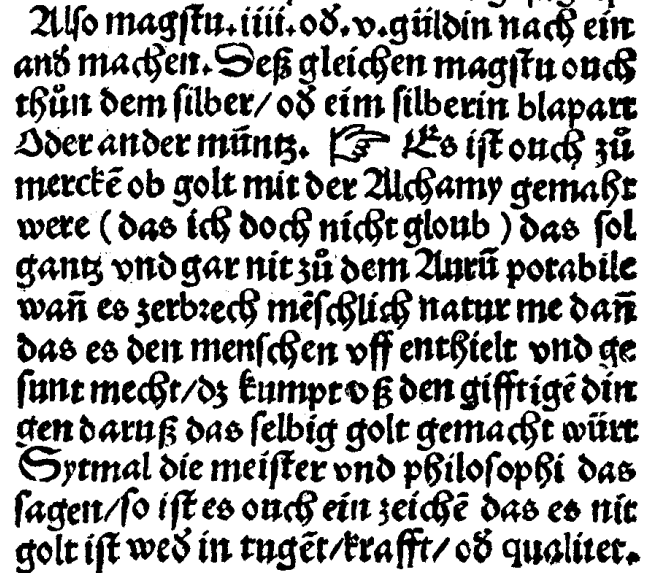 Also magstu. iiii. od̄. v. güldin nach ein
and̄ machen. Deß gleichen magstu ouch
thůn dem silber/ od̄ eim silberin blapart
Oder ander müntz. ☞ Es ist ouch zů
merckē ob golt mit der Alchamy gemaht
were ( das ich doch nicht gloub ) das sol
gantz vnd gar nit zů dem Aurū potabile
wañ es zerbrech mēschlich natur me dañ
das es den menschen vff enthielt vnd ge
sunt mecht/ dz kumpt vß den gifftigē din
gen daruß das selbig golt gemacht würt
Sytmal die meister vnd philosophi das
sagen/ so ist es ouch ein zeichē das es nit
golt ist wed̄ in tugēt/ krafft/ od̄ qualitet.